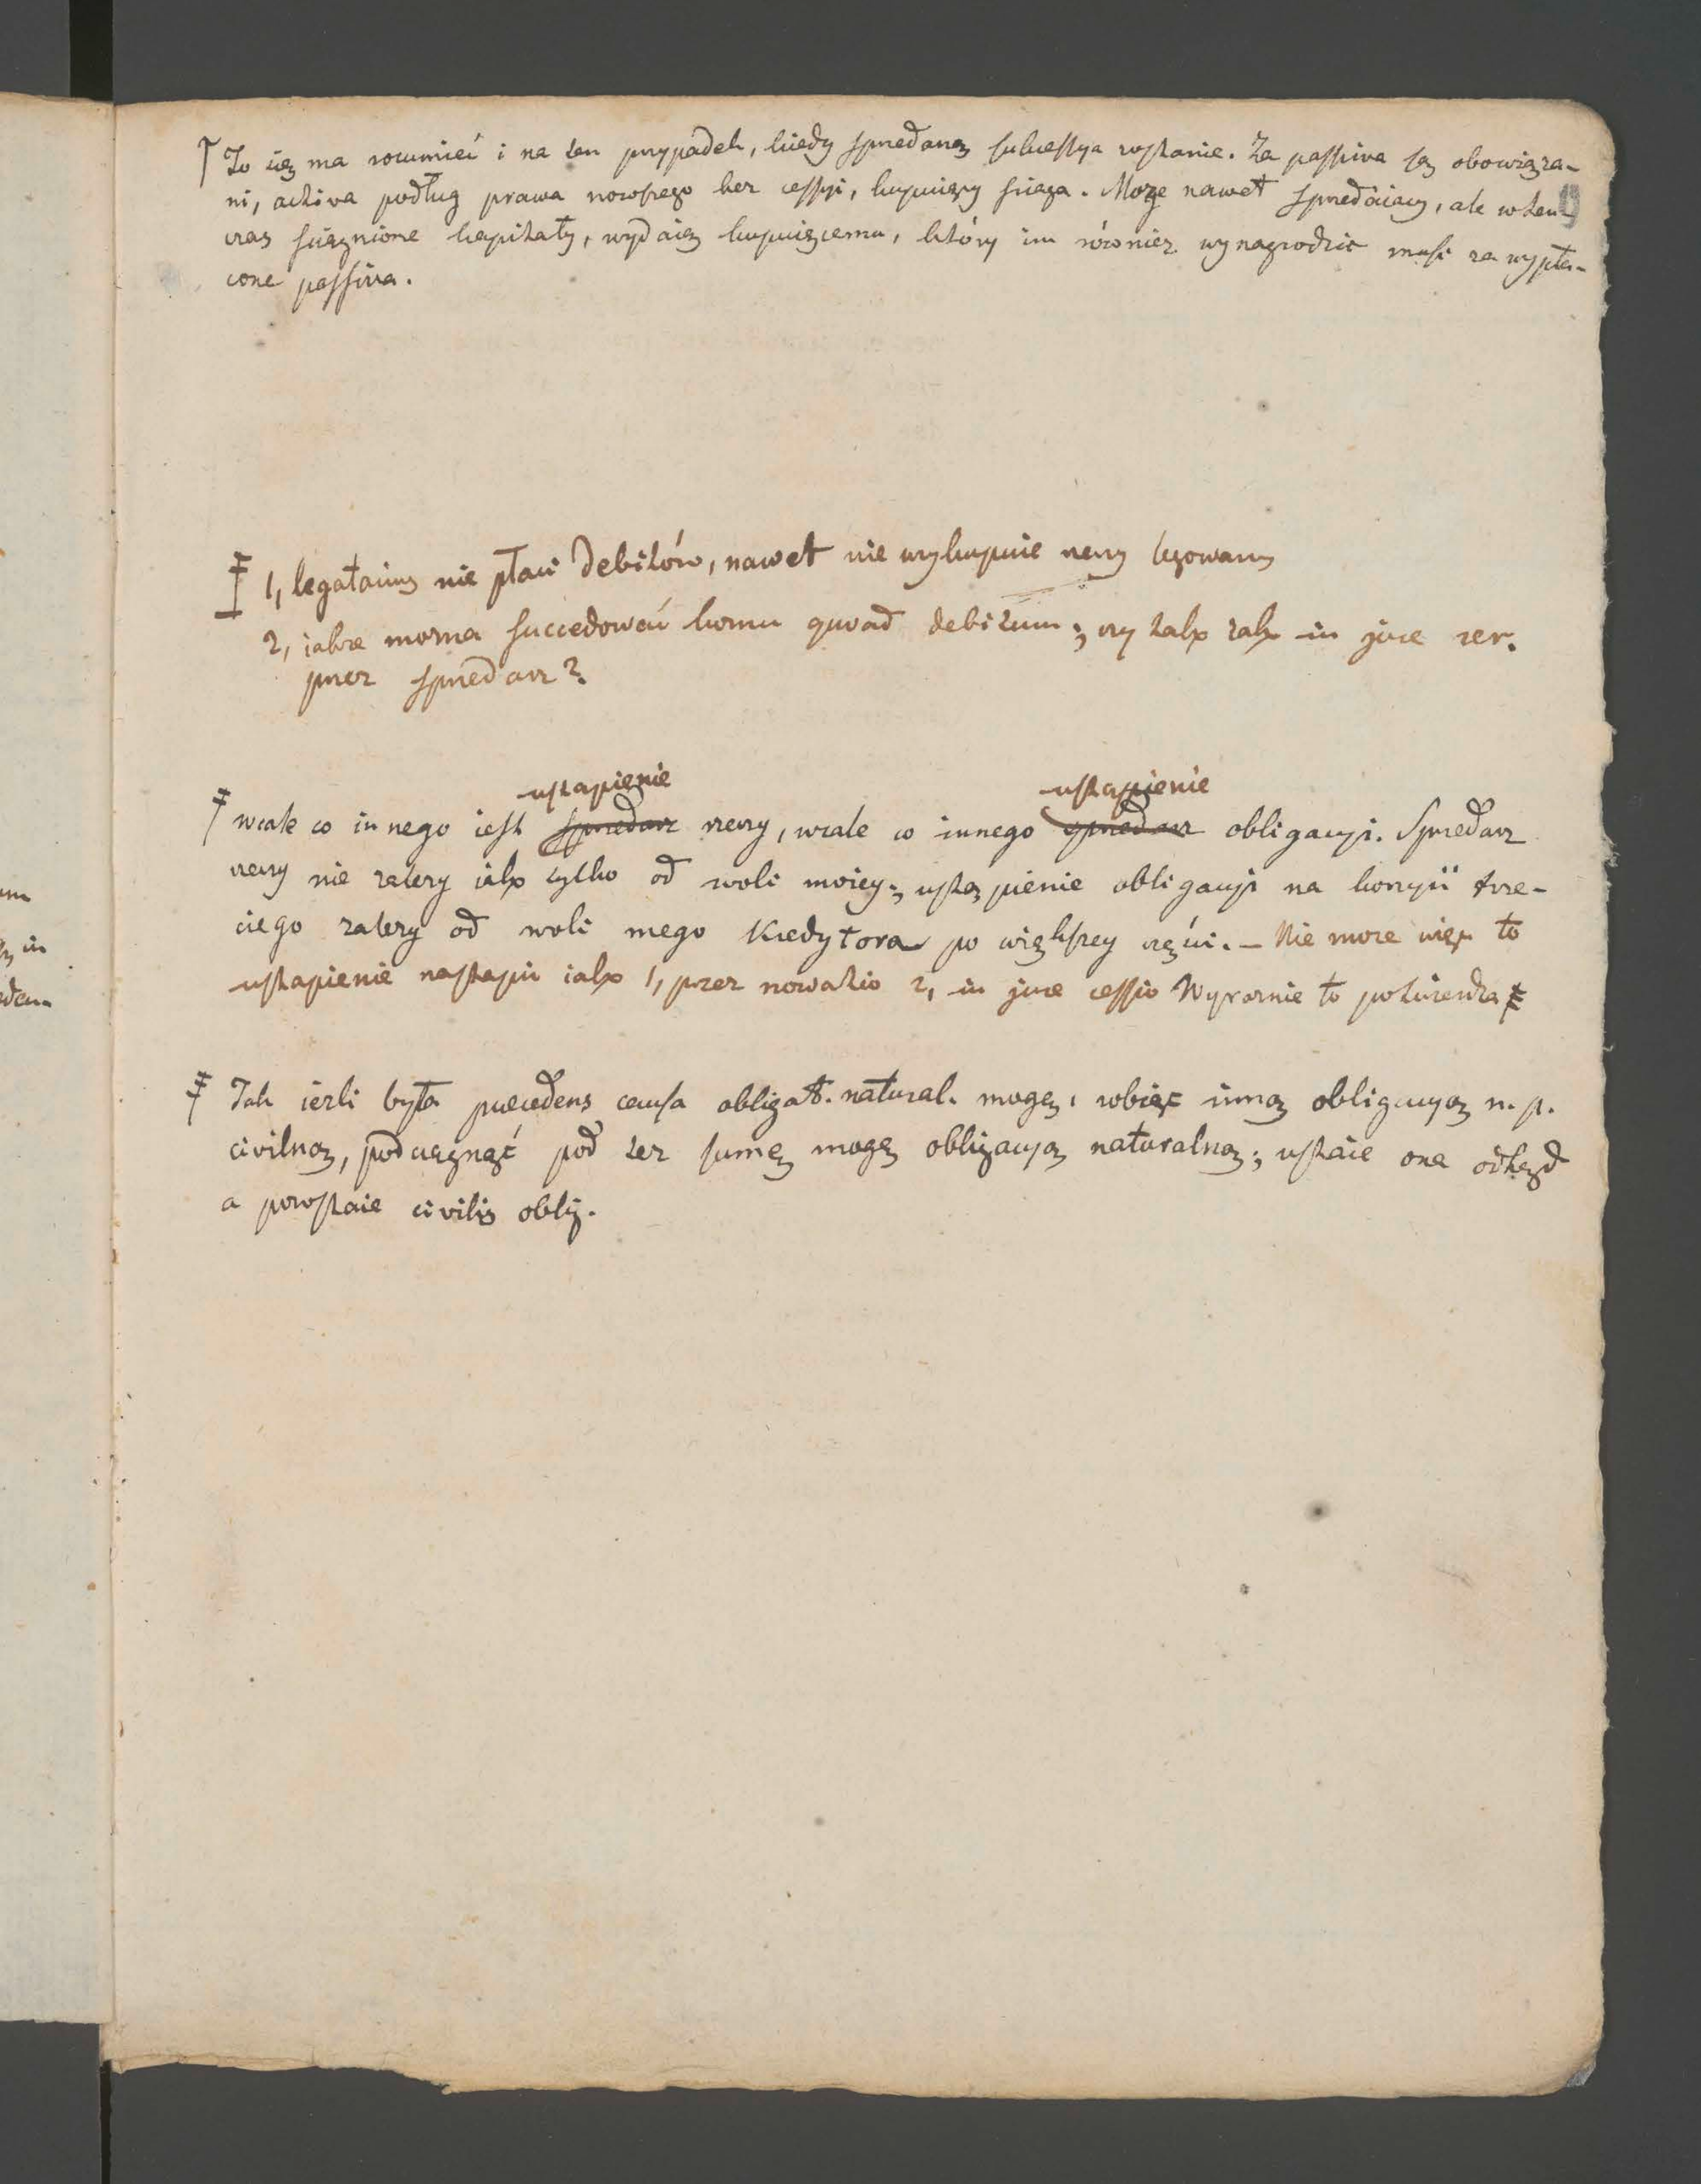 To się ma rozumieć i na ten przypadek, kiedy sprzedaną sukcessya zostanie. Za passiva są obowiąza-
ni, activa podług prawa nowszego bez cessyi, kupuiący ściąga. Może nawet sprzedaiący, ale w ten-
czas ściągnione kapitały, wydaią kupuiącemu, który im również wynagrodzić musi za wypła-
cone passiva.
1, legatarius nie płaci debitów, nawet nie wykupuie rzeczy legowany
2, jakże można succedować komu quoad debitum; czy tako jako in jure cer.
przez sprzedarz?
ustąpienie ustąpienie
wcale co innego iest sprzedarz rzeczy, wcale co innego sprzedarz obligacyi. Sprzedarz
rzeczy nie zależy jako tylko od woli moiey; ustąpienie obligacyi na korzyść trze-
ciego zależy od woli mego Kredytora po większey części. – Nie może więc to
ustąpienie nastąpić jako 1, przez novatio 2, in jure cessio Wyraźnie to potwierdza
Tak ieżli była praecedens causa obligat. natural. mogę, robiąc inną obligacyą n. p.
civilną, podciągnąć pod też sumę mogę obligacyą naturalną; ustaie ona odtąd
a powstaie civilis oblig.